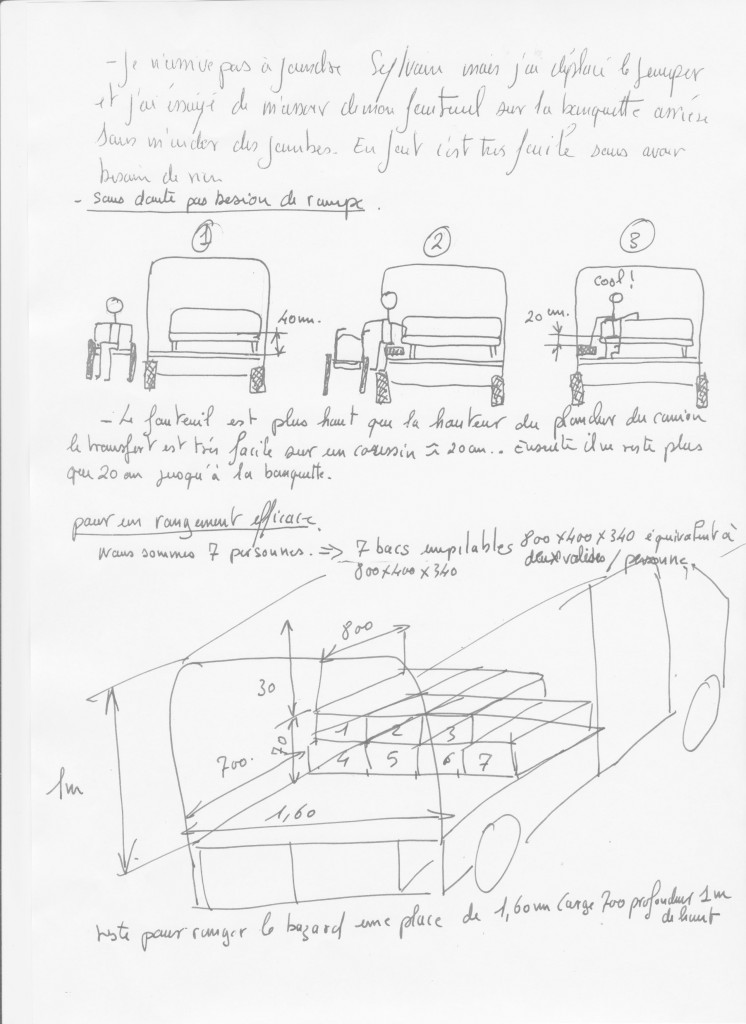 - Je n'arrive pas à joindre Sylvain mais j'ai déplacé le jumper
et j'ai essayé de m'assoir de mon fauteuil sur la banquette arrière
sans m'aider des jambes. En fait c'est très facile sans avoir
besoin de rien
- sans doute pas besion de rampe.
1 2 3
cool!
40cm.
20 cm.
- Le fauteuil est plus haut que la hauteur du plancher du camion
le transfert est très facile sur un coussin ≈ 20cm.. Ensuite il ne reste plus
que 20 cm jusqu'à la banquette.
pour un rangement efficace.
nous sommes 7 personnes. => 7 bacs empilables 800x400x340 équivalent à
800x400x340 deux valises / personne
800
30
70
1 2 3
4 5 6 7
700
1m
1,60
reste pour ranger le bazard une place de 1,60m large 700 profondeur 1m
de haut